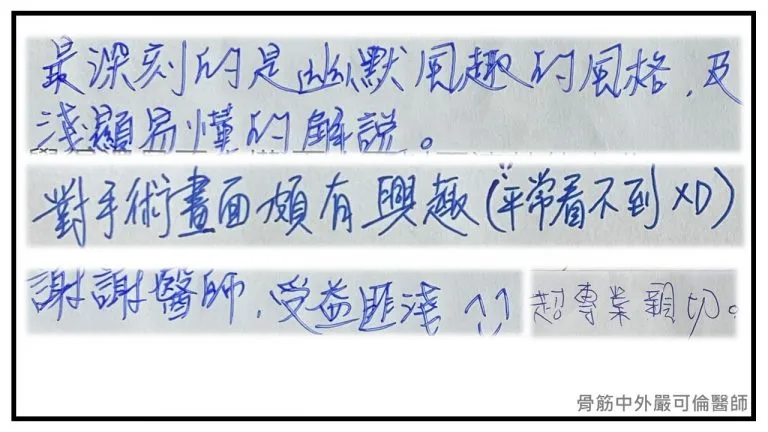 最深刻的是幽默風趣的風格,及
淺顯易懂的解說。
對手術畫面頗有興趣(∵平常看不到XD)
謝謝醫師,受益匪淺 ↑↑
超專業親切。
骨筋中外嚴可倫醫師